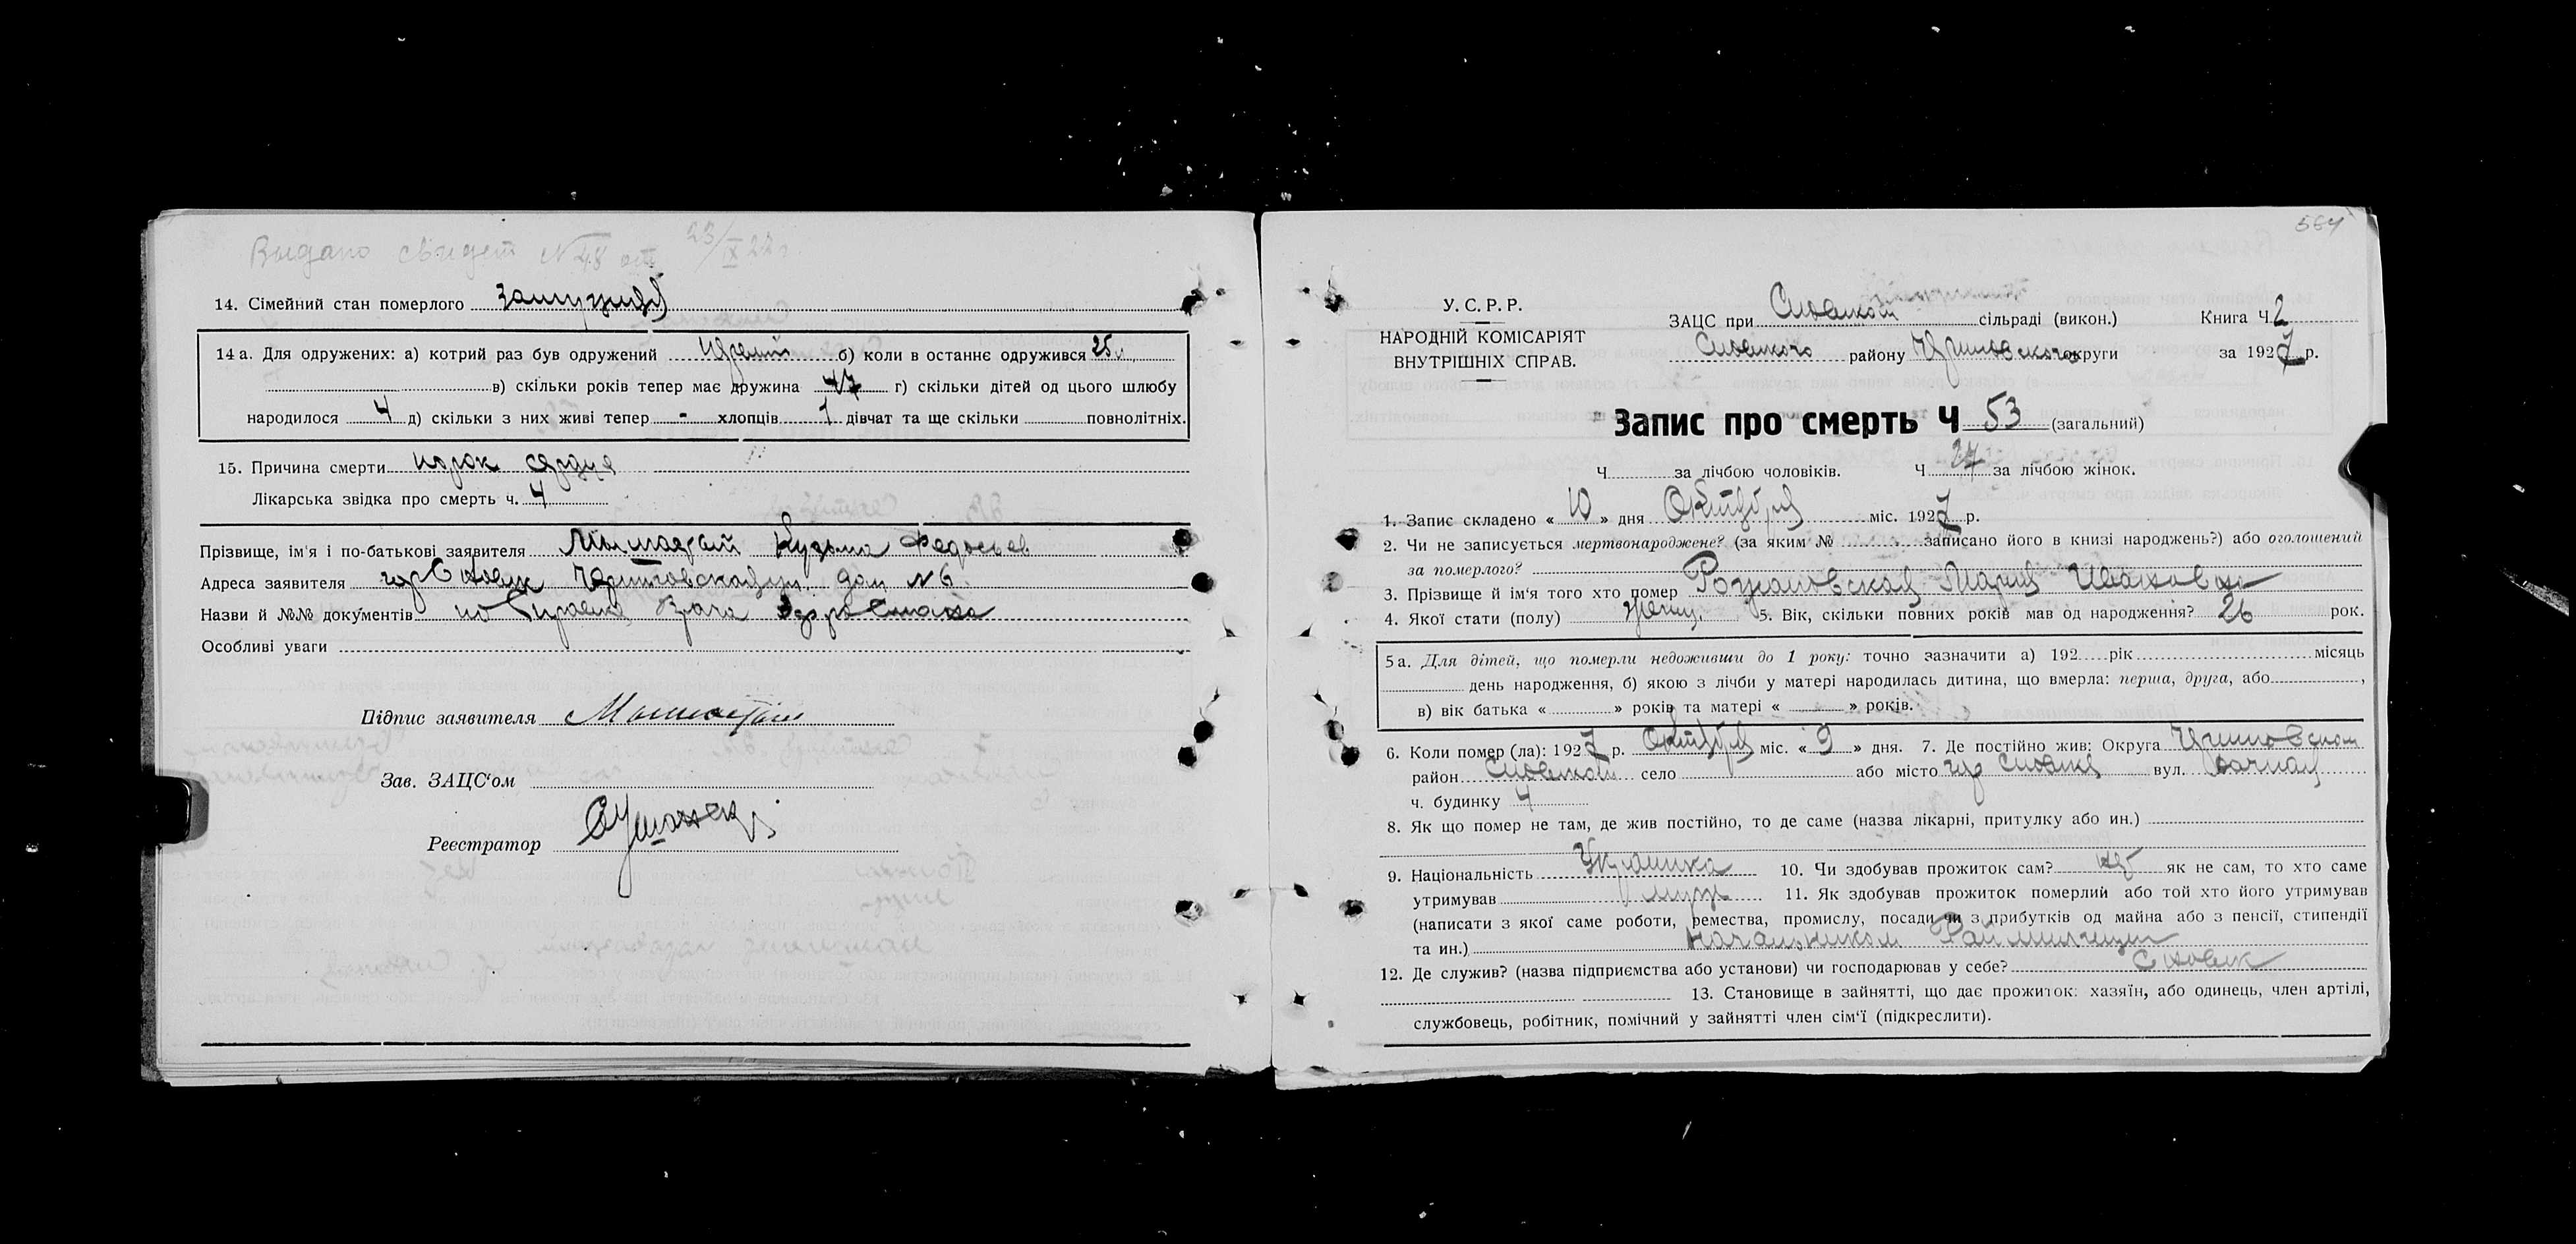 Выдано свидет № 48 от 23/IX 27 г.
14. Сімейний стан померлого замужняя
14 а. Для одружених: а) котрий раз був одружений первый б) коли в останнє одружився 25 л.
в) скільки років тепер має дружина 47 г) скільки дітей од цього шлюбу
народилося 4 д) скільки з них живі тепер - хлопців 1 дівчат та ще скільки повнолітніх.
15. Причина смерти порок сердца
Лікарська звідка про смерть ч. 4
Прізвище, ім'я і по-батькові заявителя Кузьма Федосьев
Адреса заявителя гор Сновск Черниговская дом № 6
Назви й №№ документів справка врача
Особливі уваги
Підпис заявителя
Зав. ЗАЦС'ом
Реєстратор
564
У. С. Р. Р.
НАРОДНІЙ КОМІСАРІЯТ
ВНУТРІШНІХ СПРАВ.
ЗАЦС при Сновском сільраді (викон.) Книга Ч. 2
Сновского району Черниговского округи за 1927 р.
Запис про смерть Ч 53 (загальний)
Ч. за лічбою чоловіків. Ч. 27 за лічбою жінок.
1. Запис складено « 10 » дня Октября міс. 1927 р.
2. Чи не записується мертвонароджене? (за яким № записано його в книзі народжень?) або оголошений
за померлого?
3. Прізвище й ім'я того хто помер Рожановская Мария Ивановна
4. Якої стати (полу) женщ. 5. Вік, скільки повних років мав од народження? 26 рок.
5 а. Для дітей, що померли недоживши до 1 року: точно зазначити а) 192 рік місяць
день народження, б) якою з лічби у матері народилась дитина, що вмерла: перша, друга, або ,
в) вік батька « » років та матері « » років.
6. Коли помер (ла): 1927 р. Октября міс. « 9 » дня. 7. Де постійно жив: Округа Черниговском
район Сновском село або місто гор Сновск вул.
ч. будинку 4
8. Як що помер не там, де жив постійно, то де саме (назва лікарні, притулку або ин.)
9. Національність Украинка 10. Чи здобував прожиток сам? нет як не сам, то хто саме
утримував муж 11. Як здобував прожиток померлий або той хто його утримував
(написати з якої саме роботи, ремества, промислу, посади чи з прибутків од майна або з пенсії, стипендії
та ин.) Начальником Раймилиции
12. Де служив? (назва підприємства або установи) чи господарював у себе? Сновск
13. Становище в зайнятті, що дає прожиток: хазяїн, або одинець, член артілі,
службовець, робітник, помічний у зайнятті член сім'ї (підкреслити).